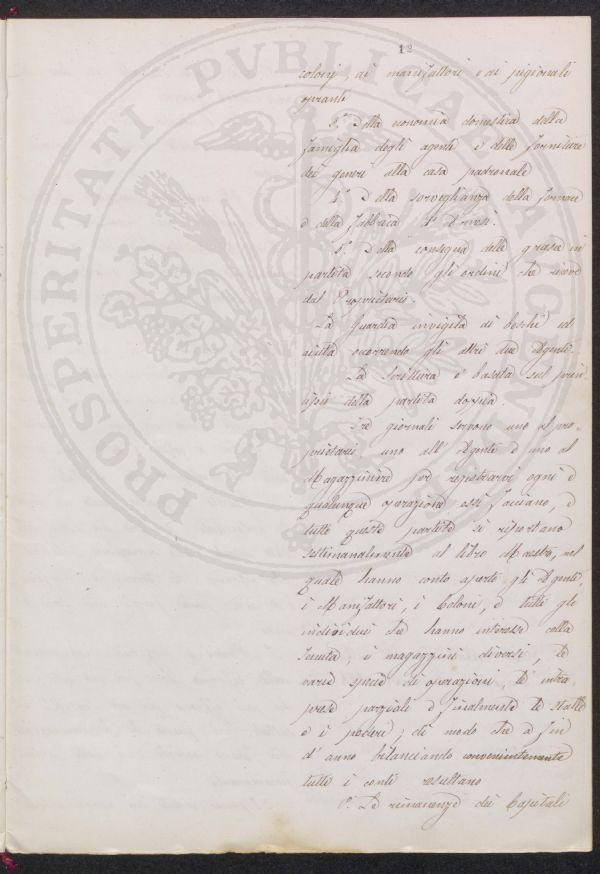 12
coloni, di manifattori e di pigionali
opranti
3º Della economia domestica della
famiglia degli agenti e delle forniture
dei generi alla casa padronale
4º Della sorveglianza della fornace
e della fabbrica
5º Della consegna delle grasce in
partita secondo gli ordini che riceve
dal Proprietario.
La Guardia invigila di boschi ed
aiuta occorrendo gli altri due Agenti.
La Scrittura è basata sul prin
cipio della partita doppia
Tre giornali servono uno al pro-
prietario, uno all'Agente e uno al
Magazziniere per registrarvi ogni e
qualunque operazione essi facciano, e
tutte queste partite si riportano
settimanalmente al libro Mastro, nel
quale hanno conto aperto gli Agenti,
i Manifattori, i Coloni, e tutti gli
individui che hanno interesse colla
Tenuta, i magazzini diversi, le
varie specie di operazioni, le intra
prese parziali e finalmente le stalle
e i poderi; di modo che a fin
d'anno bilanciando convenientemente
tutti i conti resultano
1º. Le rimanenze dei Capitali
PROSPERITATI PVBLICAE AVGENDAE